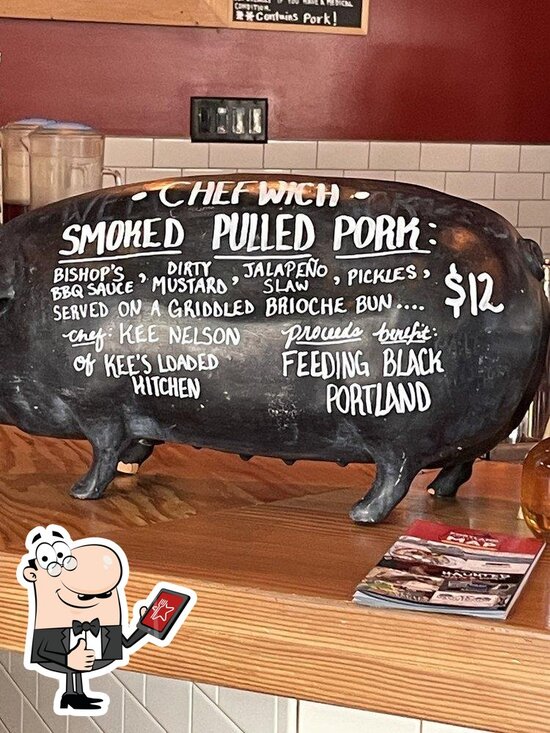 CONDITION.
** Contains Pork!
- CHEFWICH -
SMOKED PULLED PORK:
BISHOP'S BBQ SAUCE, DIRTY MUSTARD, JALAPEÑO SLAW, PICKLES,
$12
SERVED ON A GRIDDLED BRIOCHE BUN....
chef: KEE NELSON
of KEE'S LOADED
KITCHEN
proceeds benefit:
FEEDING BLACK
PORTLAND
MAP
HAUNTED